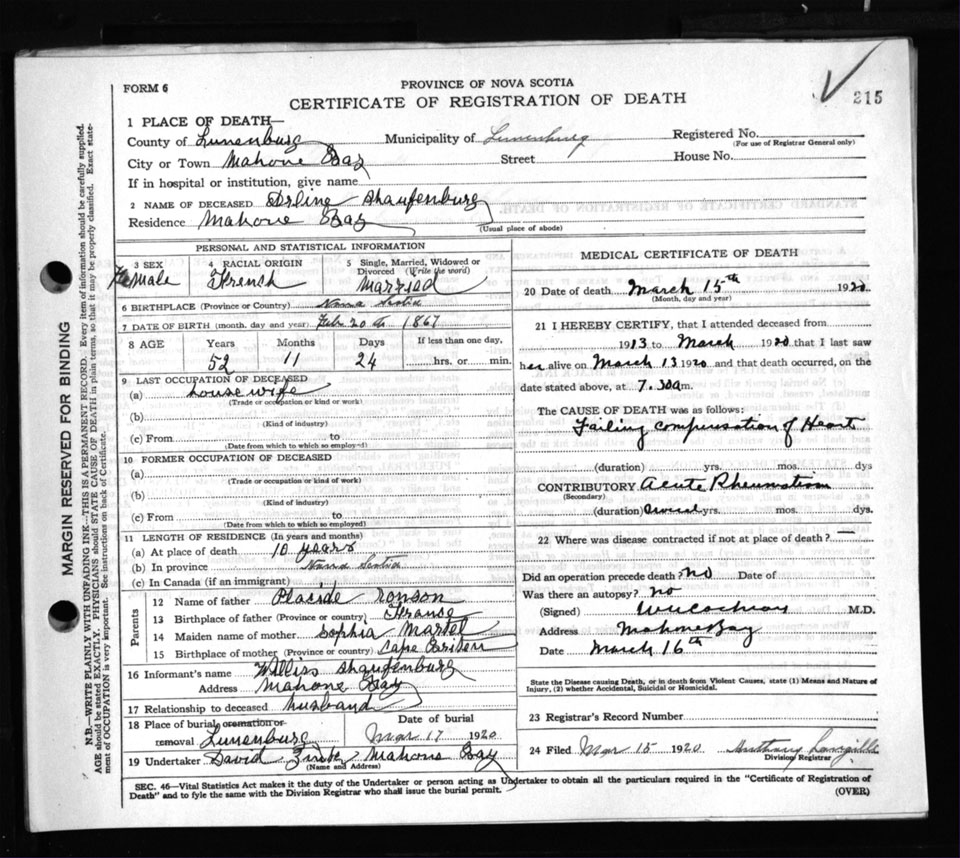 FORM 6
PROVINCE OF NOVA SCOTIA
CERTIFICATE OF REGISTRATION OF DEATH
215
1 PLACE OF DEATH—
County of Lunenburg Municipality of Lunenburg Registered No.
(For use of Registrar General only)
City or Town Mahone Bay Street House No.
If in hospital or institution, give name
2 NAME OF DECEASED Arline Shaufenburg
Residence Mahone Bay
(Usual place of abode)
PERSONAL AND STATISTICAL INFORMATION
3 SEX 4 RACIAL ORIGIN 5 Single, Married, Widowed or Divorced (Write the word)
FeMale French Married
6 BIRTHPLACE (Province or Country) Nova Scotia
7 DATE OF BIRTH (month, day and year) Feb. 20th 1867
8 AGE Years Months Days If less than one day,
52 11 24 hrs. or min.
9 LAST OCCUPATION OF DECEASED
(a) house wife
(Trade or occupation or kind or work)
(b)
(Kind of industry)
(c) From to
(Date from which to which so employed)
10 FORMER OCCUPATION OF DECEASED
(a)
(Trade or occupation or kind of work)
(b)
(Kind of industry)
(c) From to
(Date from which to which so employed)
11 LENGTH OF RESIDENCE (In years and months)
(a) At place of death 10 years
(b) In province Nova Scotia
(c) In Canada (if an immigrant)
Parents
12 Name of father Placide Ronson
13 Birthplace of father (Province or country) France
14 Maiden name of mother Sophia Martel
15 Birthplace of mother (Province or country) Cape Briton
16 Informant's name Williss Shaufenburg
Address Mahone Bay
17 Relationship to deceased husband
18 Place of burial cremation or Date of burial
removal Lunenburg Mar 17 1920
19 Undertaker David Zink Mahone Bay
(Name and Address)
MEDICAL CERTIFICATE OF DEATH
20 Date of death March 15th 1920
(Month, day and year)
21 I HEREBY CERTIFY, that I attended deceased from
1913 to March 1920 that I last saw
her alive on March 13 1920 and that death occurred, on the
date stated above, at 7.30 a m.
The CAUSE OF DEATH was as follows:
Failing compensation of Heart
(duration) yrs. mos. dys
CONTRIBUTORY Acute Rheumatism
(Secondary)
(duration) yrs. mos. dys.
22 Where was disease contracted if not at place of death? —
Did an operation precede death? no Date of
Was there an autopsy? no
(Signed) M.D.
Address Mahone Bay
Date March 16th
State the Disease causing Death, or in death from Violent Causes, state (1) Means and Nature of
Injury, (2) whether Accidental, Suicidal or Homicidal.
23 Registrar's Record Number
24 Filed Mar 15 1920 Anthony
Division Registrar
SEC. 46—Vital Statistics Act makes it the duty of the Undertaker or person acting as Undertaker to obtain all the particulars required in the "Certificate of Registration of
Death" and to fyle the same with the Division Registrar who shall issue the burial permit.
(OVER)
MARGIN RESERVED FOR BINDING
N.B.—WRITE PLAINLY WITH UNFADING INK—THIS IS A PERMANENT RECORD. Every item of information should be carefully supplied.
AGE should be stated EXACTLY. PHYSICIANS should STATE CAUSE OF DEATH in plain terms, so that it may be properly classified. Exact state-
ment of OCCUPATION is very important. See instructions on back of Certificate.